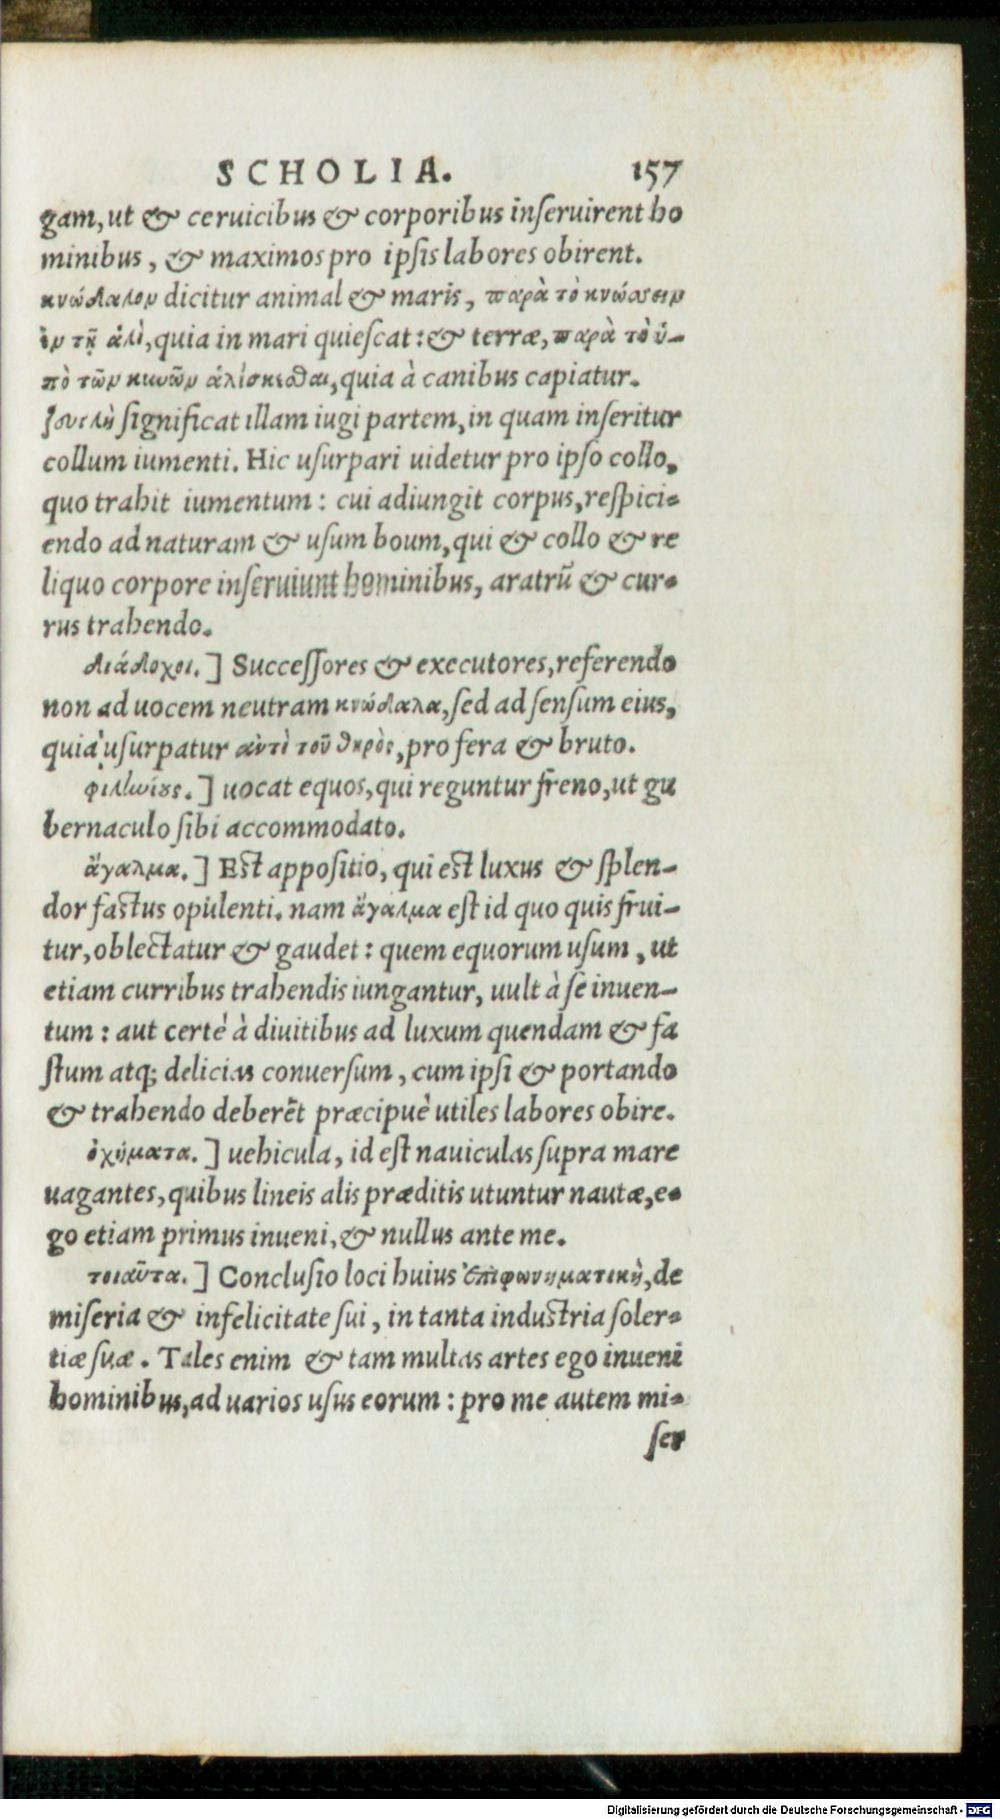 SCHOLIA. 157
gam, ut & ceruicibus & corporibus inſeruirent ho
minibus, & maximos pro ipſis labores obirent.
κνώδαλον dicitur animal & maris, παρὰ τὸ κνώσσειν
ἐν τῇ ἁλὶ, quia in mari quieſcat: & terræ, παρὰ τὸ ὑ-
πὸ τῶν κυνῶν ἁλίσκεσθαι, quia à canibus capiatur.
ζεύγλη ſignificat illam iugi partem, in quam inſeritur
collum iumenti. Hic uſurpari uidetur pro ipſo collo,
quo trahit iumentum: cui adiungit corpus, reſpici-
endo ad naturam & uſum boum, qui & collo & re
liquo corpore inſeruiunt hominibus, aratrũ & cur-
rus trahendo.
διάδοχοι.] Succeſſores & executores, referendo
non ad uocem neutram κνώδαλα, ſed ad ſenſum eius,
quia uſurpatur αὐτὶ τοῦ θηρὸς, pro fera & bruto.
φιληνίους.] uocat equos, qui reguntur freno, ut gu
bernaculo ſibi accommodato.
ἄγαλμα.] Eſt appoſitio, qui eſt luxus & ſplen-
dor faſtus opulenti. nam ἄγαλμα eſt id quo quis frui-
tur, oblectatur & gaudet: quem equorum uſum, ut
etiam curribus trahendis iungantur, uult à ſe inuen-
tum: aut certè à diuitibus ad luxum quendam & fa
ſtum atq; delicias conuerſum, cum ipſi & portando
& trahendo deberẽt præcipuè utiles labores obire.
ὀχήματα.] uehicula, id eſt nauiculas ſupra mare
uagantes, quibus lineis alis præditis utuntur nautæ, e-
go etiam primus inueni, & nullus ante me.
τοιαῦτα.] Concluſio loci huius ἐπιφωνηματικὴ, de
miſeria & infelicitate ſui, in tanta induſtria ſoler-
tiæ ſuæ. Tales enim & tam multas artes ego inueni
hominibus, ad uarios uſus eorum: pro me autem mi-
ſer
Digitalisierung gefördert durch die Deutsche Forschungsgemeinschaft - DFG